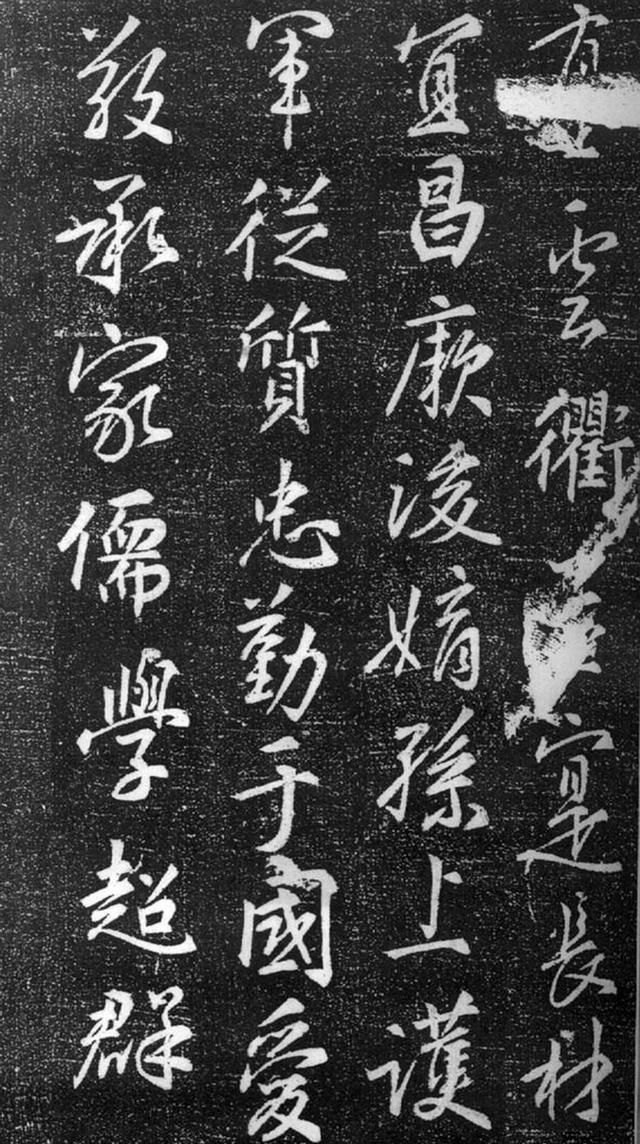 雲衢寔長材
宜昌厥後嫡孫上護
軍從質忠勤于國愛
敬承家儒學超群